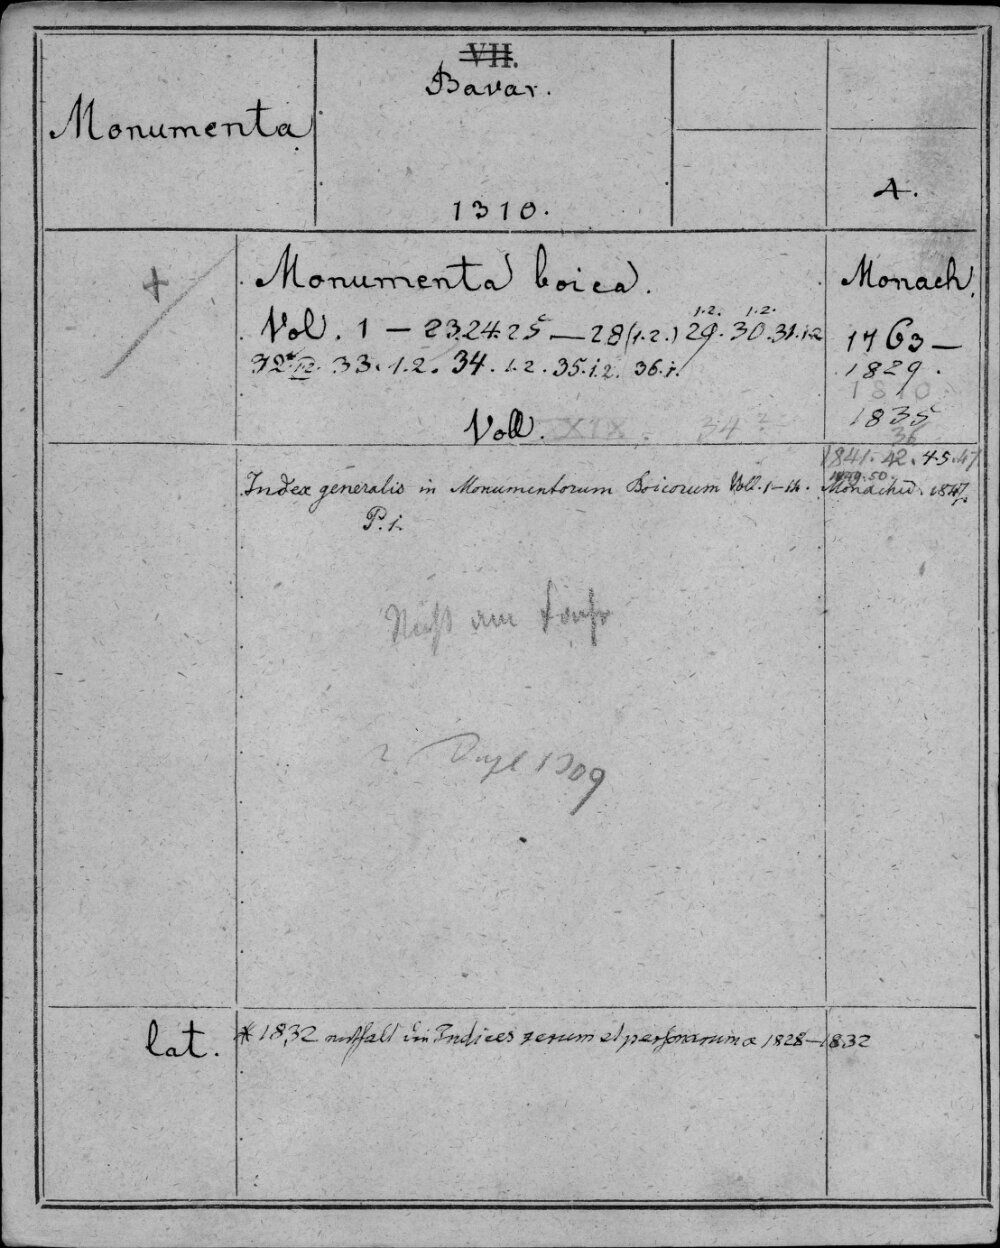 VII.
Bavar.
Monumenta
4.
1310.
+
Monumenta boica.
Monach.
1.2. 1.2.
Vol. 1 — 23.24.25 — 28 (1.2.) 29. 30. 31. 1.2
1763 —
32* 33. 1.2. 34. 1.2. 35. 1.2. 36. 1.
1829.
1810
1835
36
Voll. XIX. 34?
1841. 42. 45. 47.
1849. 50.
Index generalis in Monumentorum Boicorum Voll. 1—14. Monachii. 1847.
P. i.
Nicht am
? Dupl 1309
lat.
* 1832 enthält die Indices rerum et personarum 1828—1832